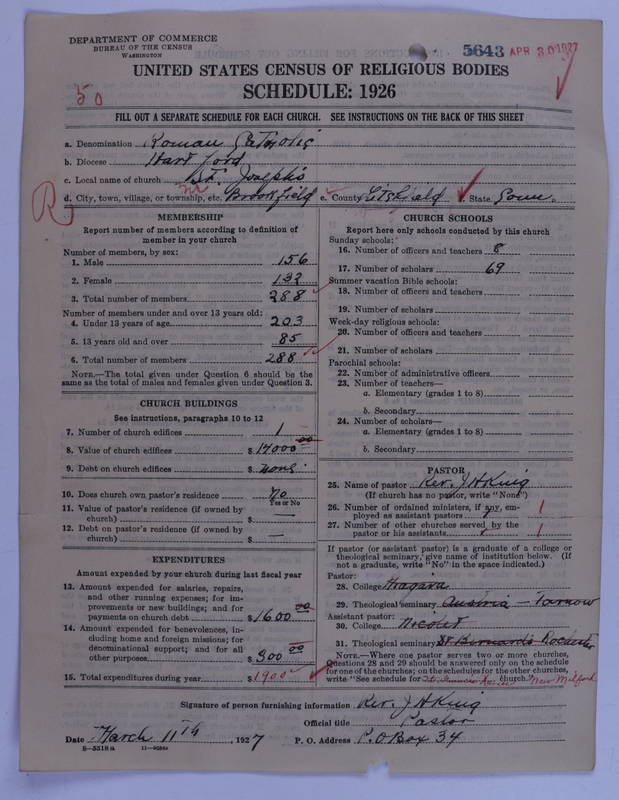 DEPARTMENT OF COMMERCE
BUREAU OF THE CENSUS
WASHINGTON
5643 APR 30 1927
UNITED STATES CENSUS OF RELIGIOUS BODIES
SCHEDULE: 1926
50
FILL OUT A SEPARATE SCHEDULE FOR EACH CHURCH. SEE INSTRUCTIONS ON THE BACK OF THIS SHEET
a. Denomination Roman Catholic
b. Diocese Hartford
c. Local name of church St. Joseph's
d. City, town, village, or township, etc. Brookfield e. County Litchfield f. State Conn.
R
MEMBERSHIP
Report number of members according to definition of
member in your church
Number of members, by sex:
1. Male 156
2. Female 132
3. Total number of members 288
Number of members under and over 13 years old:
4. Under 13 years of age 203
5. 13 years old and over 85
6. Total number of members 288
NOTE.—The total given under Question 6 should be the
same as the total of males and females given under Question 3.
CHURCH BUILDINGS
See instructions, paragraphs 10 to 12
7. Number of church edifices 1
8. Value of church edifices $ 14000 00
9. Debt on church edifices $ none
10. Does church own pastor's residence no
Yes or No
11. Value of pastor's residence (if owned by
church) $ —
12. Debt on pastor's residence (if owned by
church) $ —
EXPENDITURES
Amount expended by your church during last fiscal year
13. Amount expended for salaries, repairs,
and other running expenses; for im-
provements or new buildings; and for
payments on church debt $ 1600 00
14. Amount expended for benevolences, in-
cluding home and foreign missions; for
denominational support; and for all
other purposes $ 300 00
15. Total expenditures during year $ 1900
CHURCH SCHOOLS
Report here only schools conducted by this church
Sunday schools:
16. Number of officers and teachers 8
17. Number of scholars 69
Summer vacation Bible schools:
18. Number of officers and teachers
19. Number of scholars
Week-day religious schools:
20. Number of officers and teachers
21. Number of scholars
Parochial schools:
22. Number of administrative officers
23. Number of teachers—
a. Elementary (grades 1 to 8)
b. Secondary
24. Number of scholars—
a. Elementary (grades 1 to 8)
b. Secondary
PASTOR
25. Name of pastor Rev. J H King
(If church has no pastor, write "None")
26. Number of ordained ministers, if any, em-
ployed as assistant pastors 1
27. Number of other churches served by the
pastor or his assistants 1
If pastor (or assistant pastor) is a graduate of a college or
theological seminary, give name of institution below. (If
not a graduate, write "No" in the space indicated.)
Pastor:
28. College Niagara
29. Theological seminary Austria — Tarnow
Assistant pastor:
30. College Nicolet
31. Theological seminary St Bernard's Rochester
NOTE.—Where one pastor serves two or more churches,
Questions 28 and 29 should be answered only on the schedule
for one of the churches; on the schedules for the other churches,
write "See schedule for St. Francis Xavier church." New Milford
Signature of person furnishing information Rev. J H King
Official title Pastor
Date March 11th, 1927 P. O. Address P.O Box 34
8—5518a 11—9036